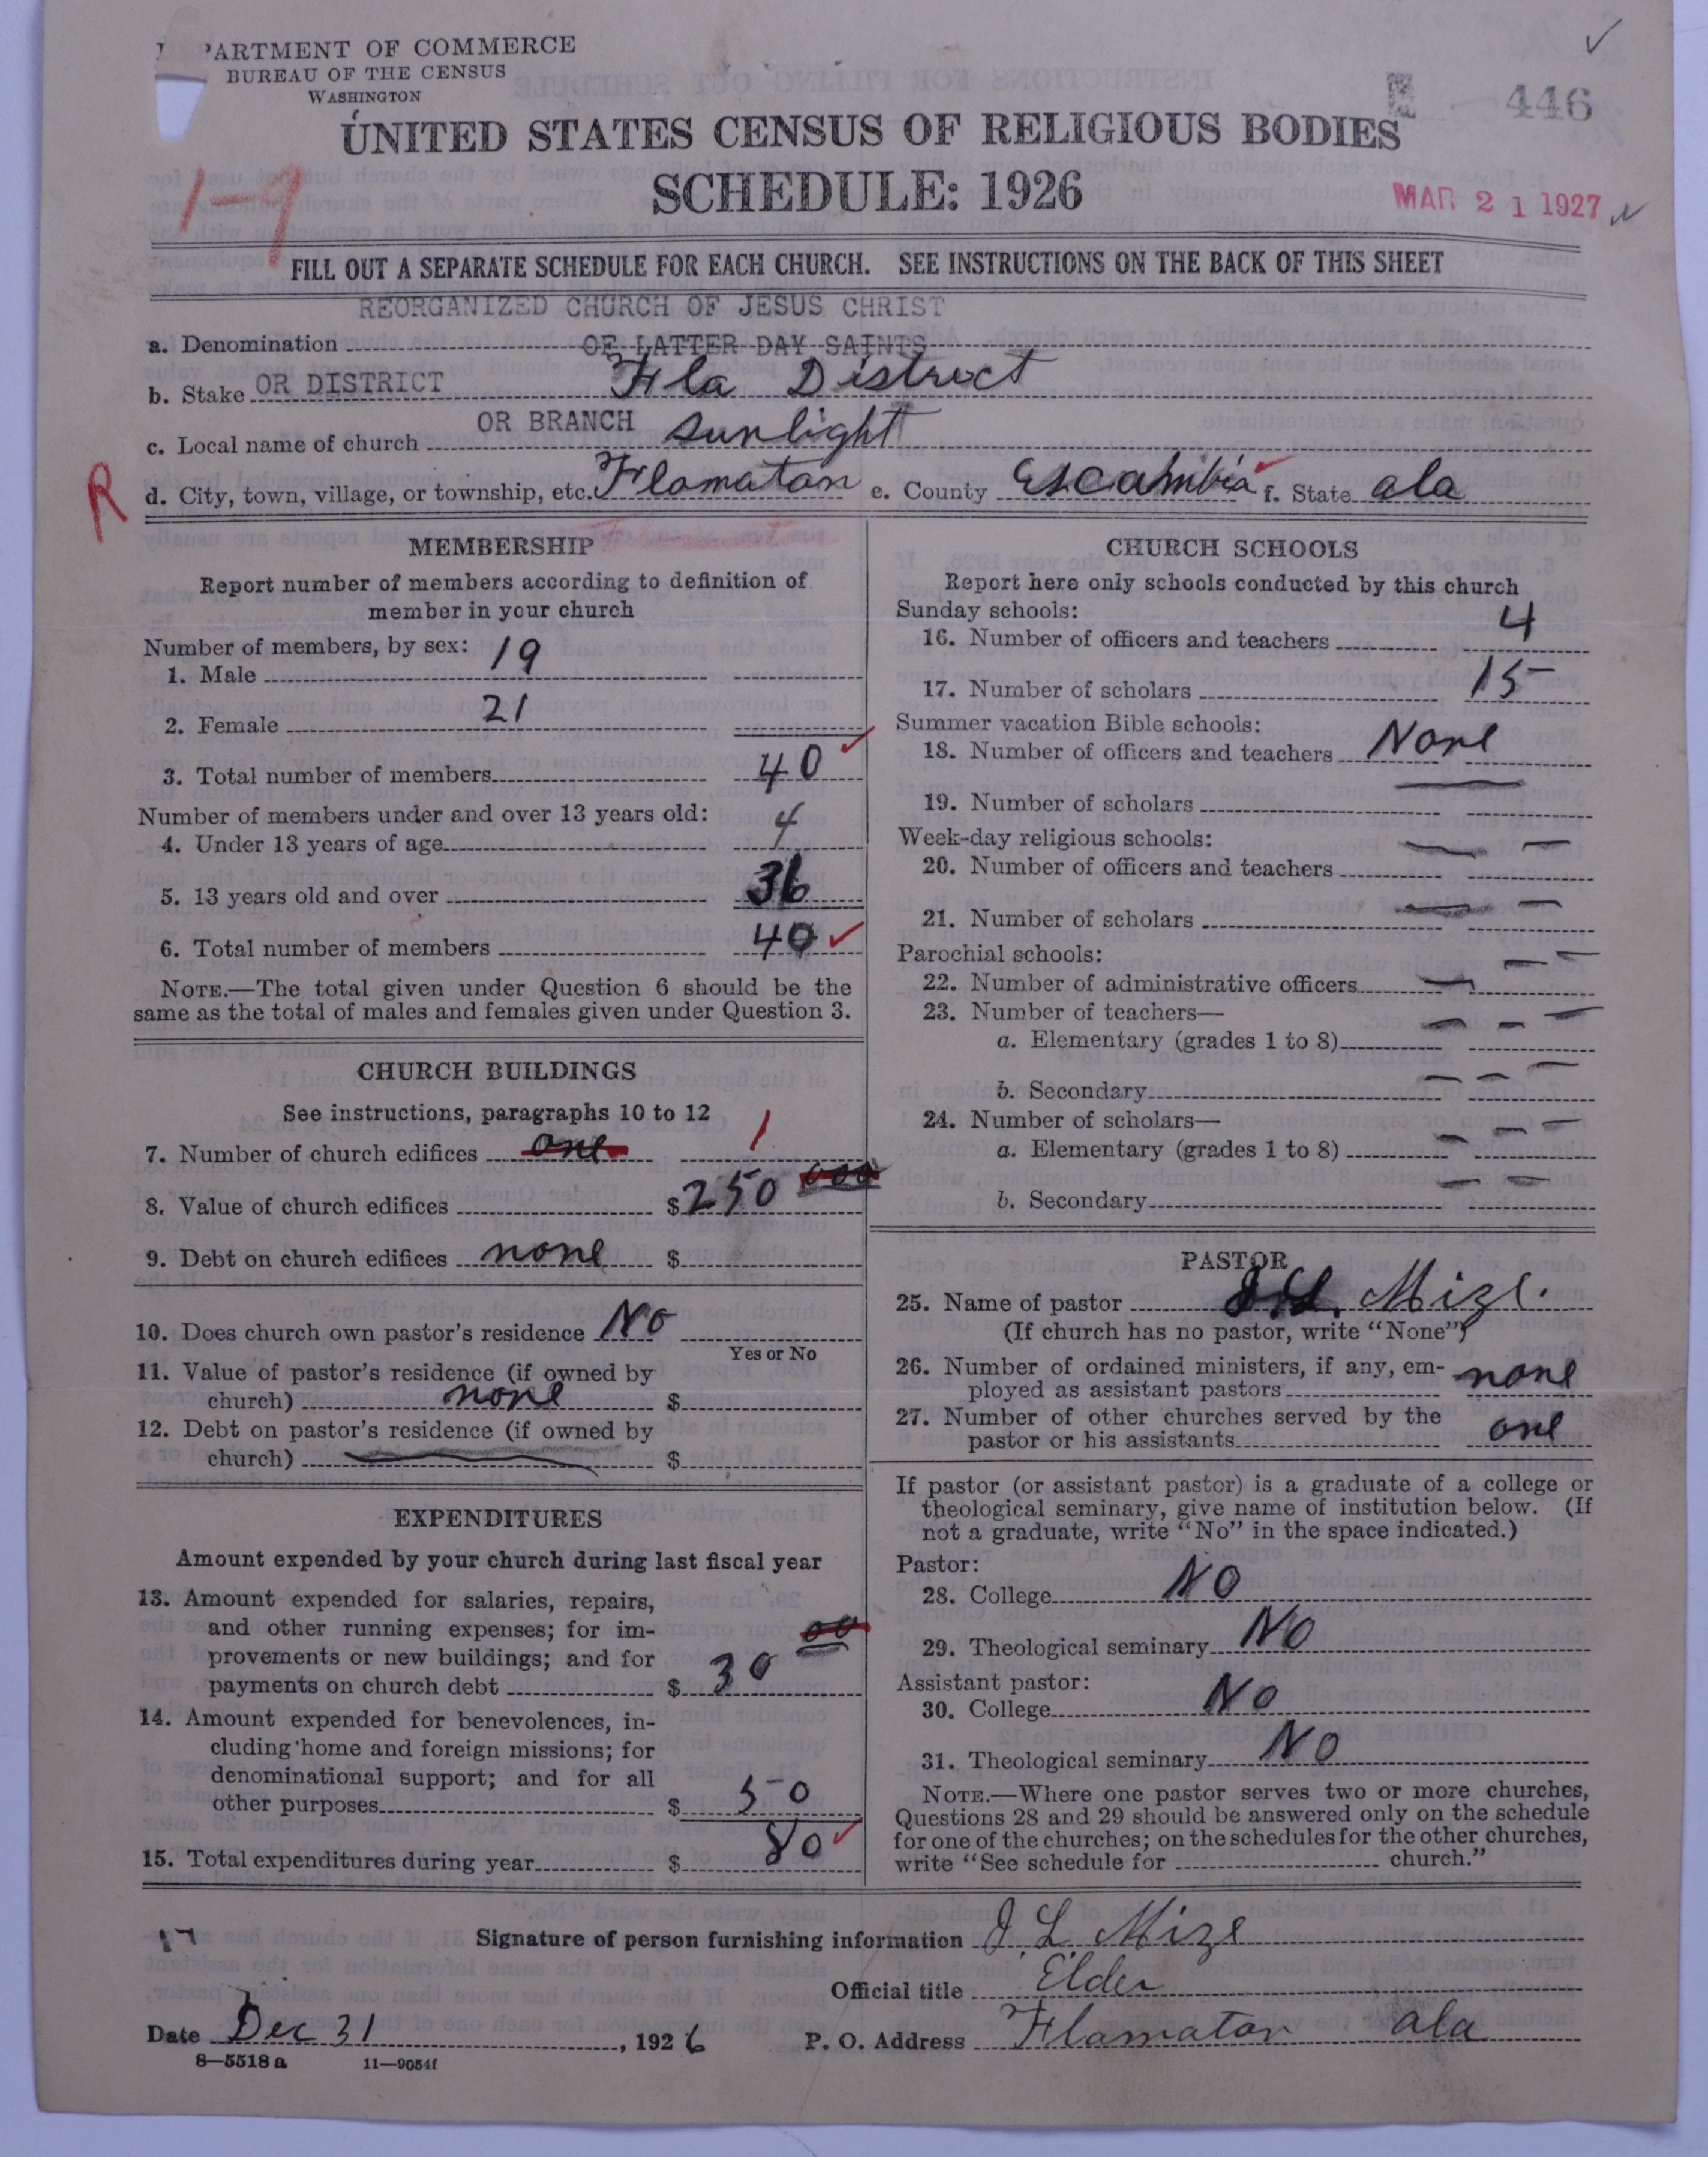 PARTMENT OF COMMERCE
BUREAU OF THE CENSUS
WASHINGTON
446
UNITED STATES CENSUS OF RELIGIOUS BODIES
SCHEDULE: 1926
MAR 21 1927
FILL OUT A SEPARATE SCHEDULE FOR EACH CHURCH. SEE INSTRUCTIONS ON THE BACK OF THIS SHEET
REORGANIZED CHURCH OF JESUS CHRIST
a. Denomination OF LATTER DAY SAINTS
b. Stake OR DISTRICT Fla District
c. Local name of church OR BRANCH Sunlight
R
d. City, town, village, or township, etc. Flomaton e. County Escambia f. State ala
MEMBERSHIP
Report number of members according to definition of
member in your church
Number of members, by sex:
1. Male 19
2. Female 21
3. Total number of members 40
Number of members under and over 13 years old:
4. Under 13 years of age 4
5. 13 years old and over 36
6. Total number of members 40
NOTE.—The total given under Question 6 should be the
same as the total of males and females given under Question 3.
CHURCH BUILDINGS
See instructions, paragraphs 10 to 12
7. Number of church edifices one 1
8. Value of church edifices $ 250 000
9. Debt on church edifices none $
10. Does church own pastor's residence No
Yes or No
11. Value of pastor's residence (if owned by
church) none $
12. Debt on pastor's residence (if owned by
church) $
EXPENDITURES
Amount expended by your church during last fiscal year
13. Amount expended for salaries, repairs,
and other running expenses; for im-
provements or new buildings; and for
payments on church debt $ 30 00
14. Amount expended for benevolences, in-
cluding home and foreign missions; for
denominational support; and for all
other purposes $ 50
15. Total expenditures during year $ 80
CHURCH SCHOOLS
Report here only schools conducted by this church
Sunday schools:
16. Number of officers and teachers 4
17. Number of scholars 15
Summer vacation Bible schools:
18. Number of officers and teachers None
19. Number of scholars
Week-day religious schools:
20. Number of officers and teachers
21. Number of scholars
Parochial schools:
22. Number of administrative officers
23. Number of teachers—
a. Elementary (grades 1 to 8)
b. Secondary
24. Number of scholars—
a. Elementary (grades 1 to 8)
b. Secondary
PASTOR
25. Name of pastor J.L. Mize.
(If church has no pastor, write "None")
26. Number of ordained ministers, if any, em-
ployed as assistant pastors none
27. Number of other churches served by the
pastor or his assistants one
If pastor (or assistant pastor) is a graduate of a college or
theological seminary, give name of institution below. (If
not a graduate, write "No" in the space indicated.)
Pastor:
28. College NO
29. Theological seminary NO
Assistant pastor:
30. College NO
31. Theological seminary NO
NOTE.—Where one pastor serves two or more churches,
Questions 28 and 29 should be answered only on the schedule
for one of the churches; on the schedules for the other churches,
write "See schedule for church."
Signature of person furnishing information J. L. Mize
Official title Elder
Date Dec 31, 1926 P. O. Address Flomaton ala
8—5518a 11—9054f